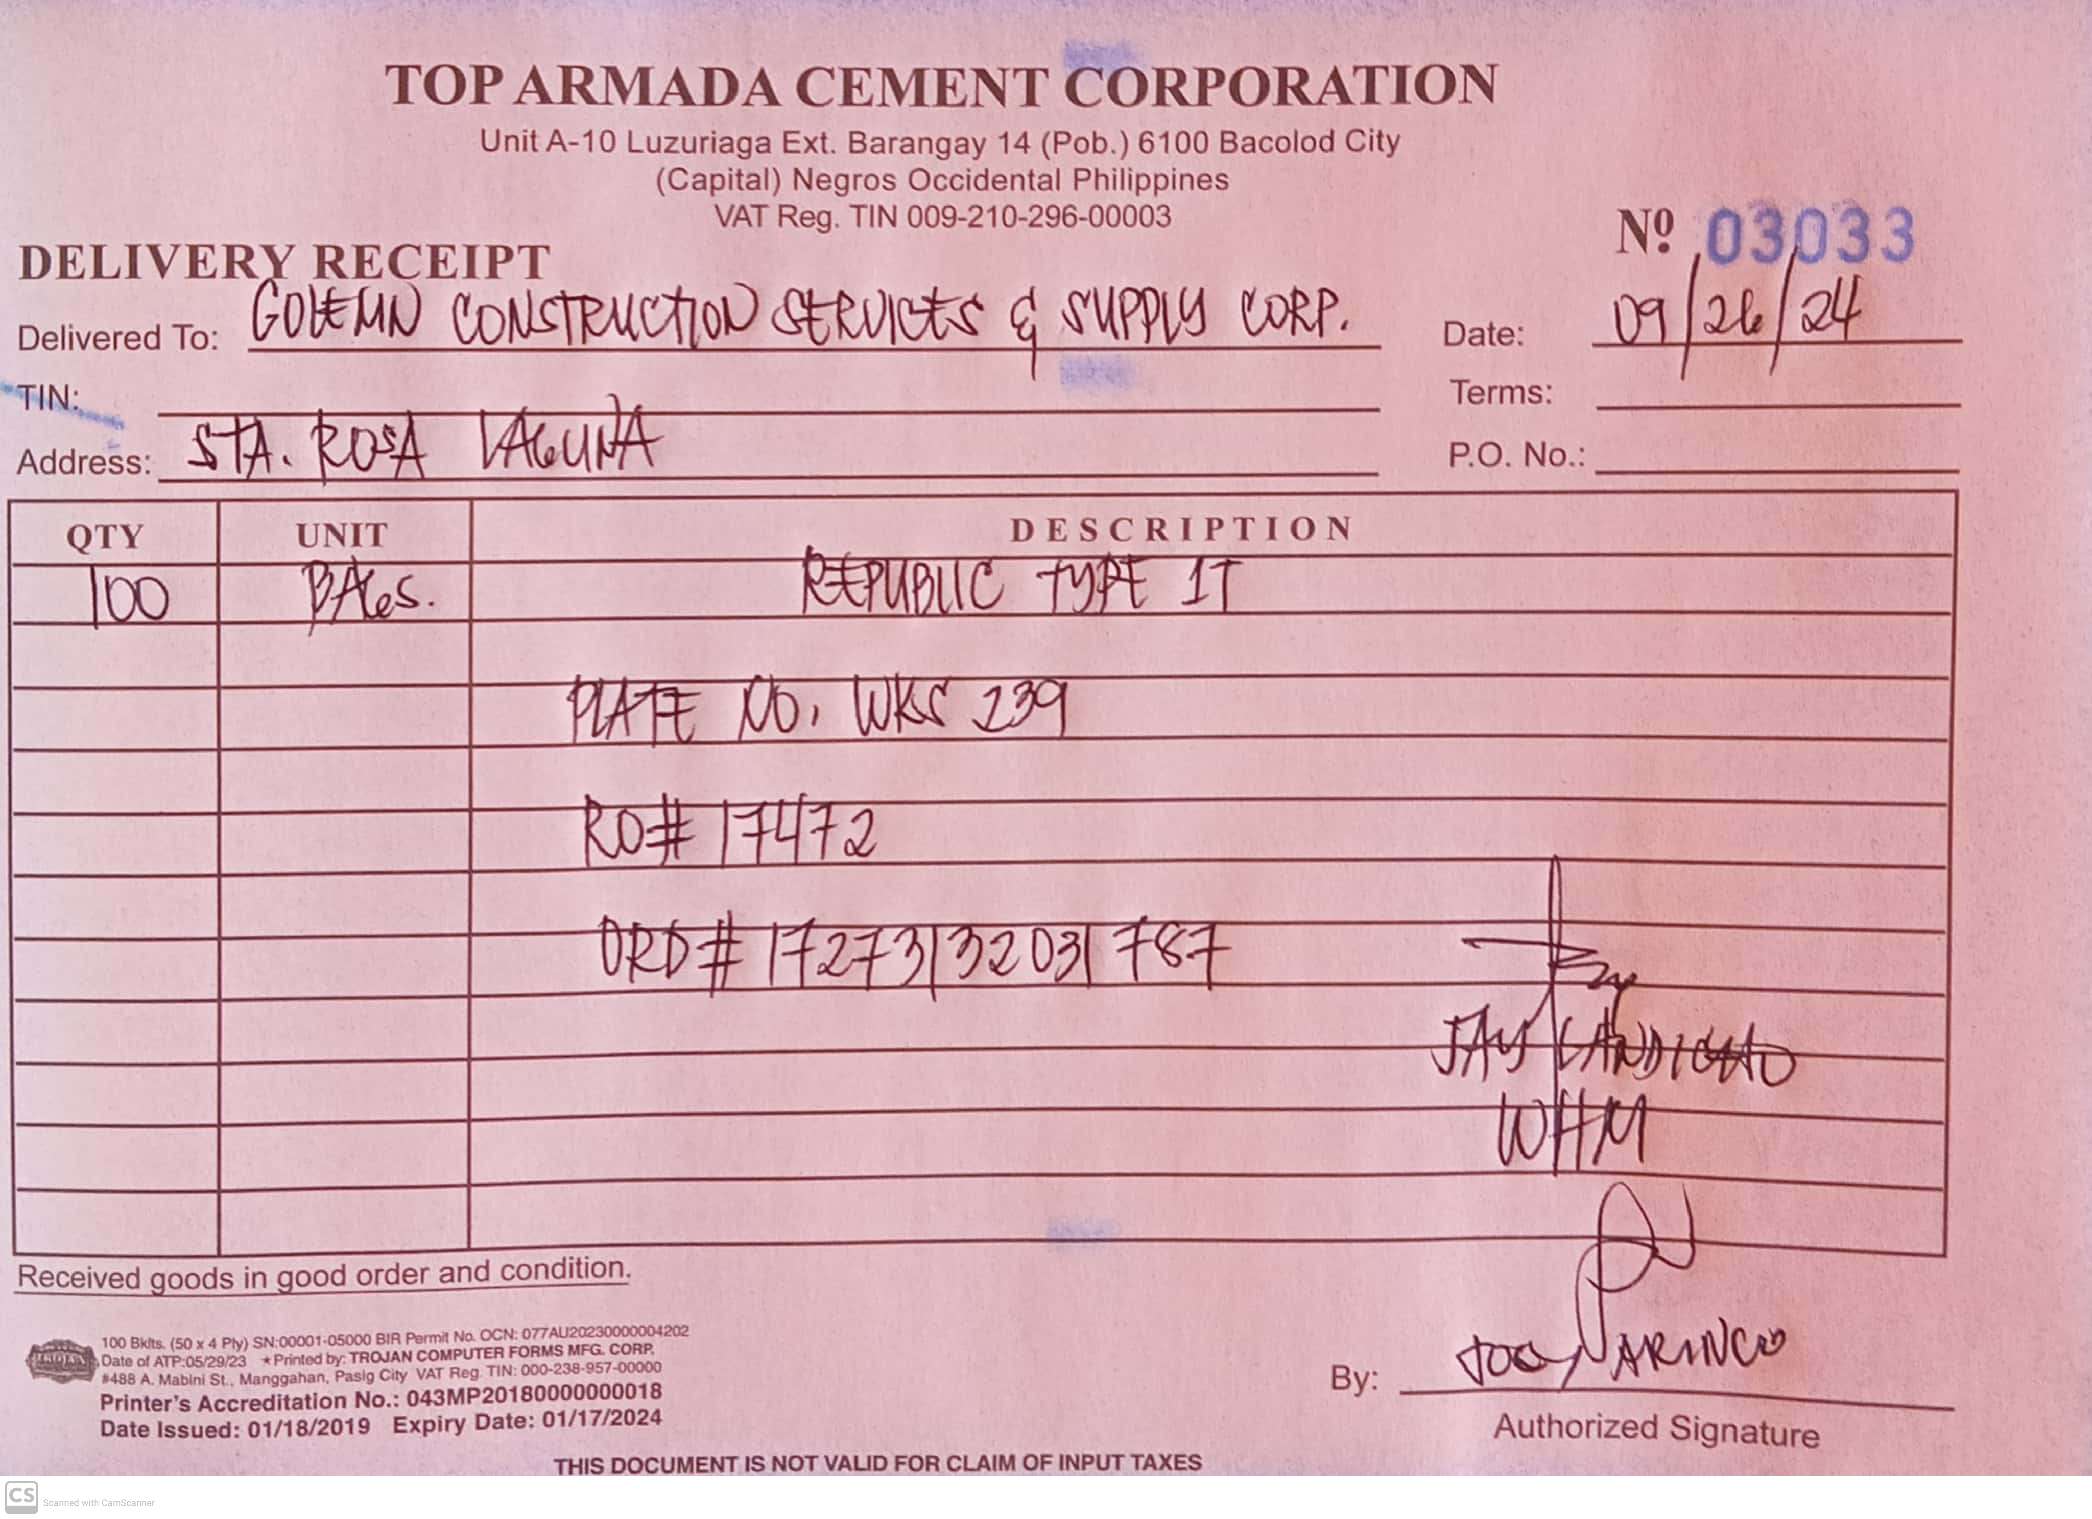 TOP ARMADA CEMENT CORPORATION
Unit A-10 Luzuriaga Ext. Barangay 14 (Pob.) 6100 Bacolod City
(Capital) Negros Occidental Philippines
VAT Reg. TIN 009-210-296-00003
Nº 03033
DELIVERY RECEIPT
Delivered To: GOLEMN CONSTRUCTION SERVICES & SUPPLY CORP.
Date: 09/26/24
TIN:
Terms:
Address: STA. ROSA LAGUNA
P.O. No.:
QTY UNIT DESCRIPTION
100 BAGS. REPUBLIC TYPE 1T
PLATE NO. WKS 239
RO# 17472
ORD# 17273132031787
JAY
WHM
Received goods in good order and condition.
100 Bklts. (50 x 4 Ply) SN:00001-05000 BIR Permit No. OCN: 077AU20230000004202
Date of ATP:05/29/23 ★Printed by: TROJAN COMPUTER FORMS MFG. CORP.
#488 A. Mabini St., Manggahan, Pasig City VAT Reg. TIN: 000-238-957-00000
Printer's Accreditation No.: 043MP20180000000018
Date Issued: 01/18/2019 Expiry Date: 01/17/2024
By:
Authorized Signature
THIS DOCUMENT IS NOT VALID FOR CLAIM OF INPUT TAXES
CS Scanned with CamScanner